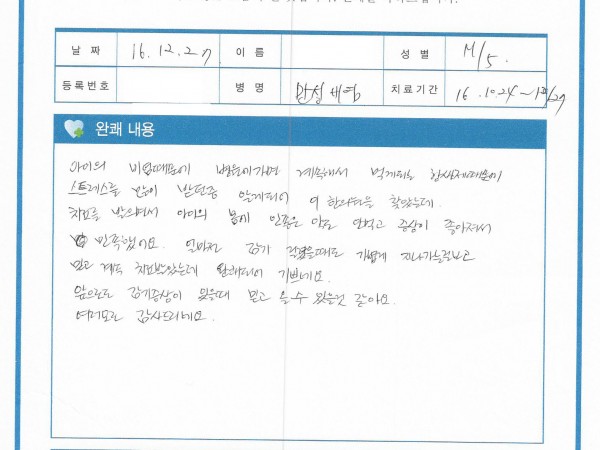 날 짜 16.12.27 이 름 성 별 M/5.
등록번호 병 명 만성비염 치료기간 16.10.24~12/29
완쾌 내용
아이의 비염때문에 병원에가면 계속해서 먹게되는 항생제때문에
스트레스를 많이 받던중 알게되어 이 한의원을 찾았는데.
치료를 받으면서 아이의 몸에 안좋은 약도 안먹고 증상이 좋아져서
만족했어요. 얼마전 감기 걸렸을때도 가볍게 지나가는걸보고
믿고 계속 치료받았는데 완쾌되어 기쁘네요.
앞으로도 감기증상이 있을때 믿고 올수 있을것 같아요.
여러모로 감사드리네요.